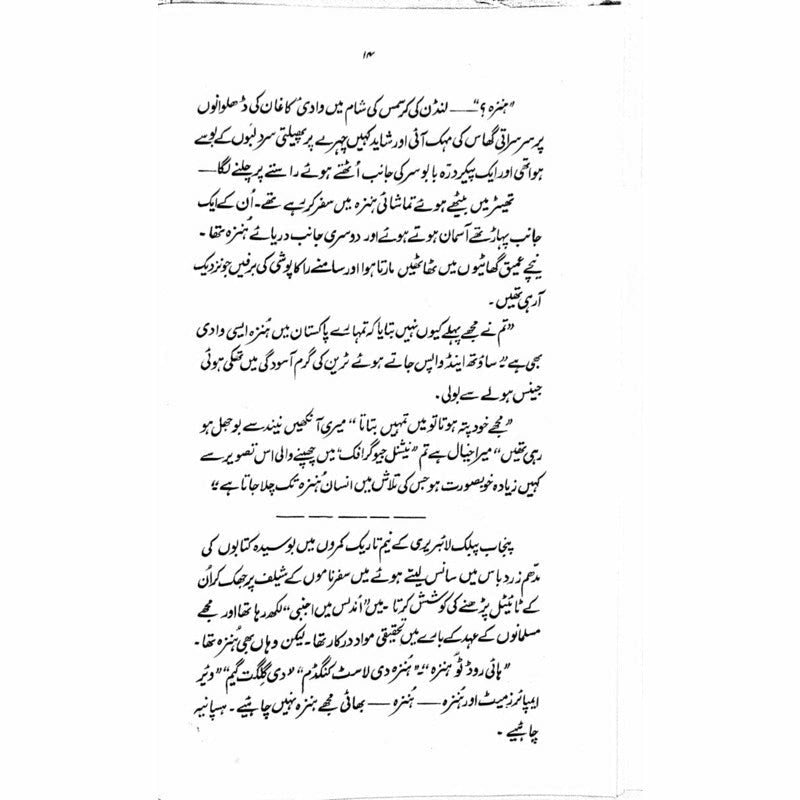 ۱۴
”ہنزہ؟“ —— لنڈن کی کرسمس کی شام میں وادیٔ کاغان کی ڈھلوانوں
پر سرسراتی گھاس کی مہک آئی اور شاید کہیں چہرے پر پھیلتی سرد لبوں کے بوسے
ہوا تھی اور ایک پیکر درّہ بابوسر کی جانب اُٹھتے ہوئے راستے پر چلنے لگا ——
تھیٹر میں بیٹھے ہوئے تماشائی ہنزہ میں سفر کر رہے تھے۔ اُن کے ایک
جانب پہاڑ تھے آسمان ہوتے ہوئے اور دوسری جانب دریائے ہُنزہ تھا۔
نیچے عمیق گھاٹیوں میں ٹھاٹھیں مارتا ہوا اور سامنے راکاپوشی کی برفیں جو نزدیک
آ رہی تھیں۔
”تم نے مجھے پہلے کیوں نہیں بتایا کہ تمہارے پاکستان میں ہُنزہ ایسی وادی
بھی ہے“ ساؤتھ اینڈ واپس جاتے ہوئے ٹرین کی گرم آسودگی میں تھکی ہوئی
جینس ہولے سے بولی۔
”مجھے خود پتہ ہوتا تو میں تمہیں بتاتا“ میری آنکھیں نیند سے بوجھل ہو
رہی تھیں ”میرا خیال ہے تم ”نیشنل جیوگرافک“ میں چھپنے والی اس تصویر سے
کہیں زیادہ خوبصورت ہو جس کی تلاش میں انسان ہُنزہ تک چلا جاتا ہے“
پنجاب پبلک لائبریری کے نیم تاریک کمروں میں بوسیدہ کتابوں کی
مدّھم زرد باس میں سانس لیتے ہوئے میں سفرناموں کے شیلف پر جھک کر اُن
کے ٹائیٹل پڑھنے کی کوشش کرتا۔ میں ”اُندلس میں اجنبی“ لکھ رہا تھا اور مجھے
مسلمانوں کے عہد کے بارے میں تحقیقی مواد درکار تھا۔ لیکن وہاں بھی ہُنزہ تھا۔
”ہائی روڈ ٹو ہنزہ“ ”ہُنزہ دی لاسٹ کنگڈم“ ”دی گلگت گیم“ ”وئیر
ایمپائرز میٹ اور ہُنزہ —— ہُنزہ —— بھائی مجھے ہنزہ نہیں چاہئیے۔ ہسپانیہ
چاہئیے۔